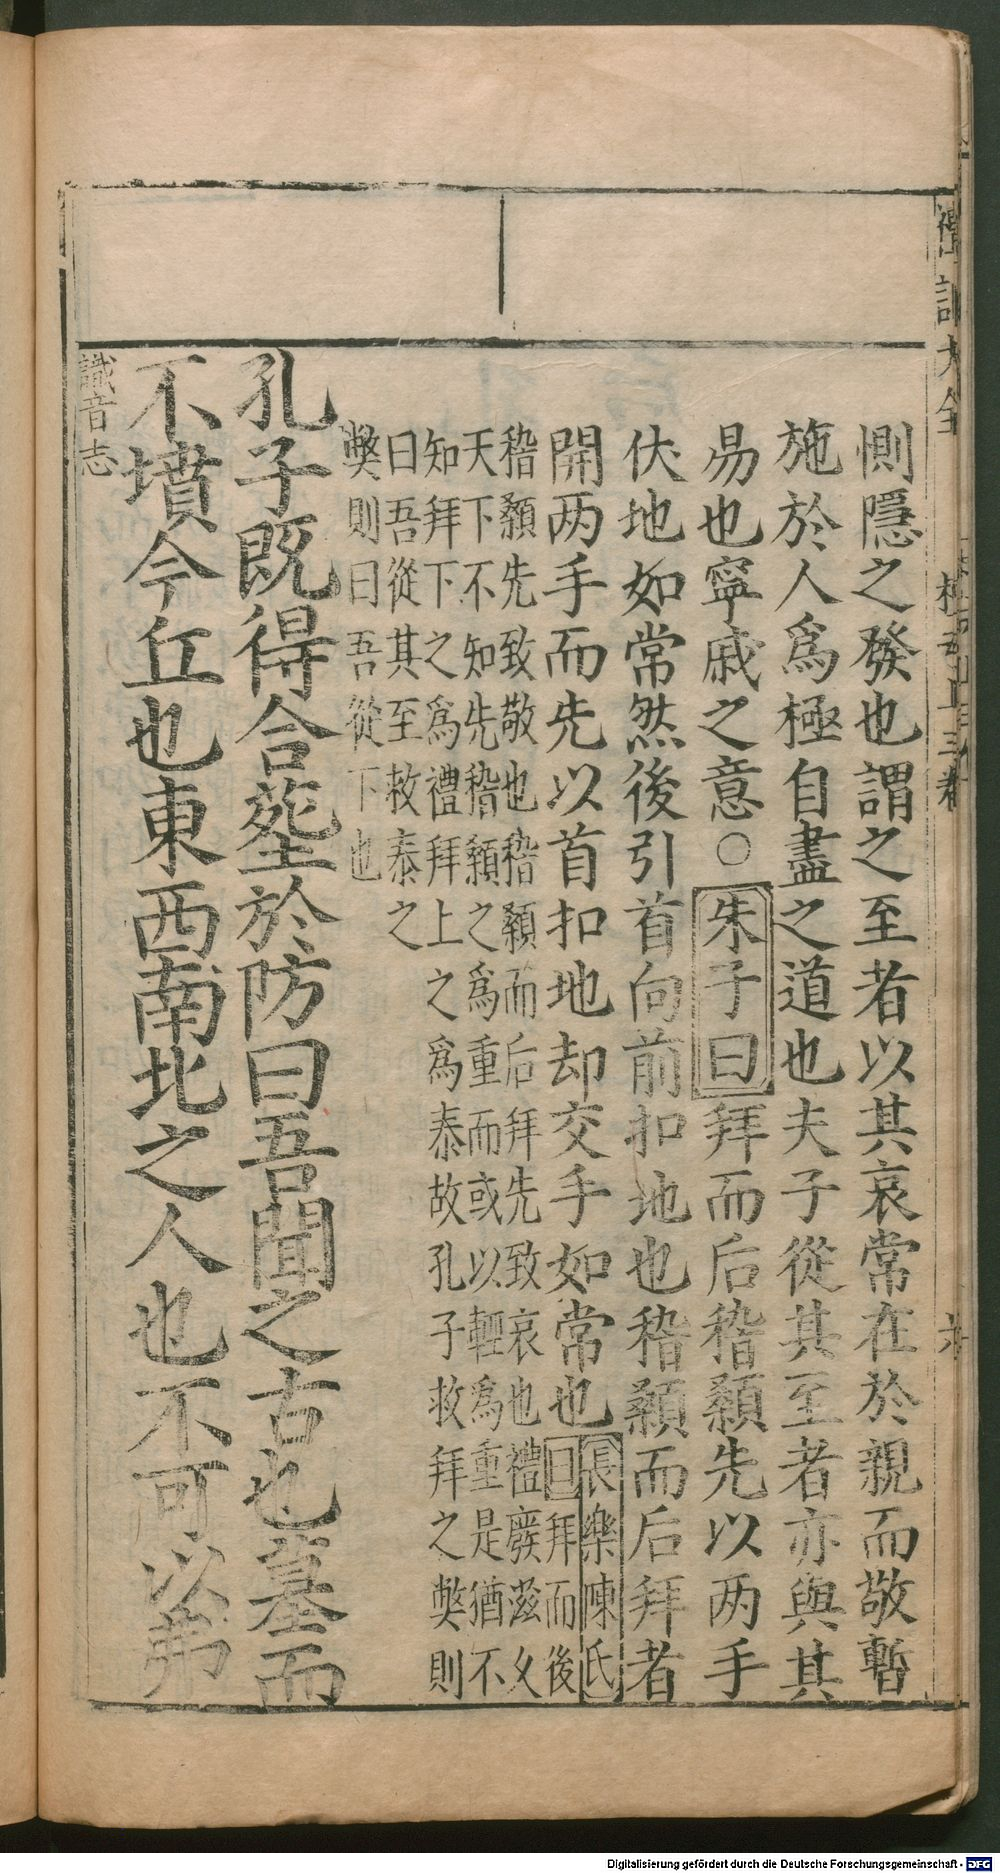 惻隱之發也謂之至者以其哀常在於親而敬暫
施於人爲極自盡之道也夫子從其至者亦與其
易也寧戚之意○朱子曰拜而后稽顙先以两手
伏地如常然後引首向前扣地也稽顙而后拜者
開两手而先以首扣地却交手如常也長樂陳氏
曰拜而後
稽顙先致敬也稽顙而后拜先致哀也禮廢滋久
天下不知先稽顙之爲重而或以輕爲重是猶不
知拜下之爲禮拜上之爲泰故孔子救拜之獘則
曰吾從其至救泰之
獘則曰吾從下也
孔子既得合塟於防曰吾聞之古也墓而
不墳今丘也東西南北之人也不可以弗
識音志
Digitalisierung gefördert durch die Deutsche Forschungsgemeinschaft - DFG